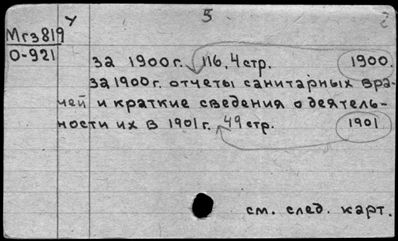 У 5 2
Мгз819
О-921
за 1900г. 116,4стр. 1900.
за 1900г. отчеты санитарных вра-
чей и краткие сведения о деятель-
ности их в 1901г. 49стр. 1901
см. след. карт.